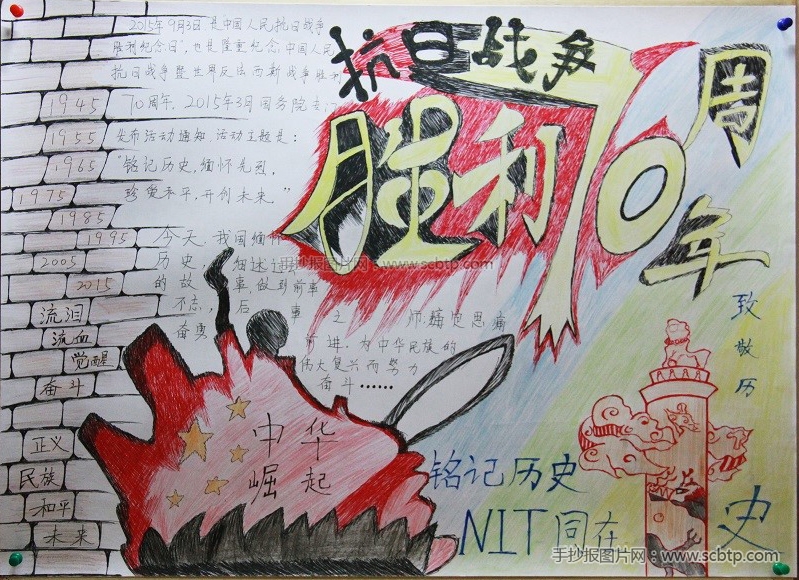 2015年9月3日是中国人民抗日战争
胜利纪念日，也是隆重纪念中国人民
抗日战争暨世界反法西斯战争胜利
70周年，2015年3月国务院专门
发布活动通知，活动主题是：
“铭记历史，缅怀先烈，
珍爱和平，开创未来。”
抗日战争
胜利70周年
1945
1955
1965
1975
1985
1995
2005
2015
流泪
流血
觉醒
奋斗
正义
民族
和平
未来
今天，我国缅怀
历史
的故事，做到前事
不忘，后事之师，痛定思痛
奋勇前进，为中华民族的
伟大复兴而努力
奋斗……
手抄报图片网：www.scbtp.com
中华
崛起
致敬历
史
铭记历史
NIT同在
手抄报图片网：www.scbtp.com